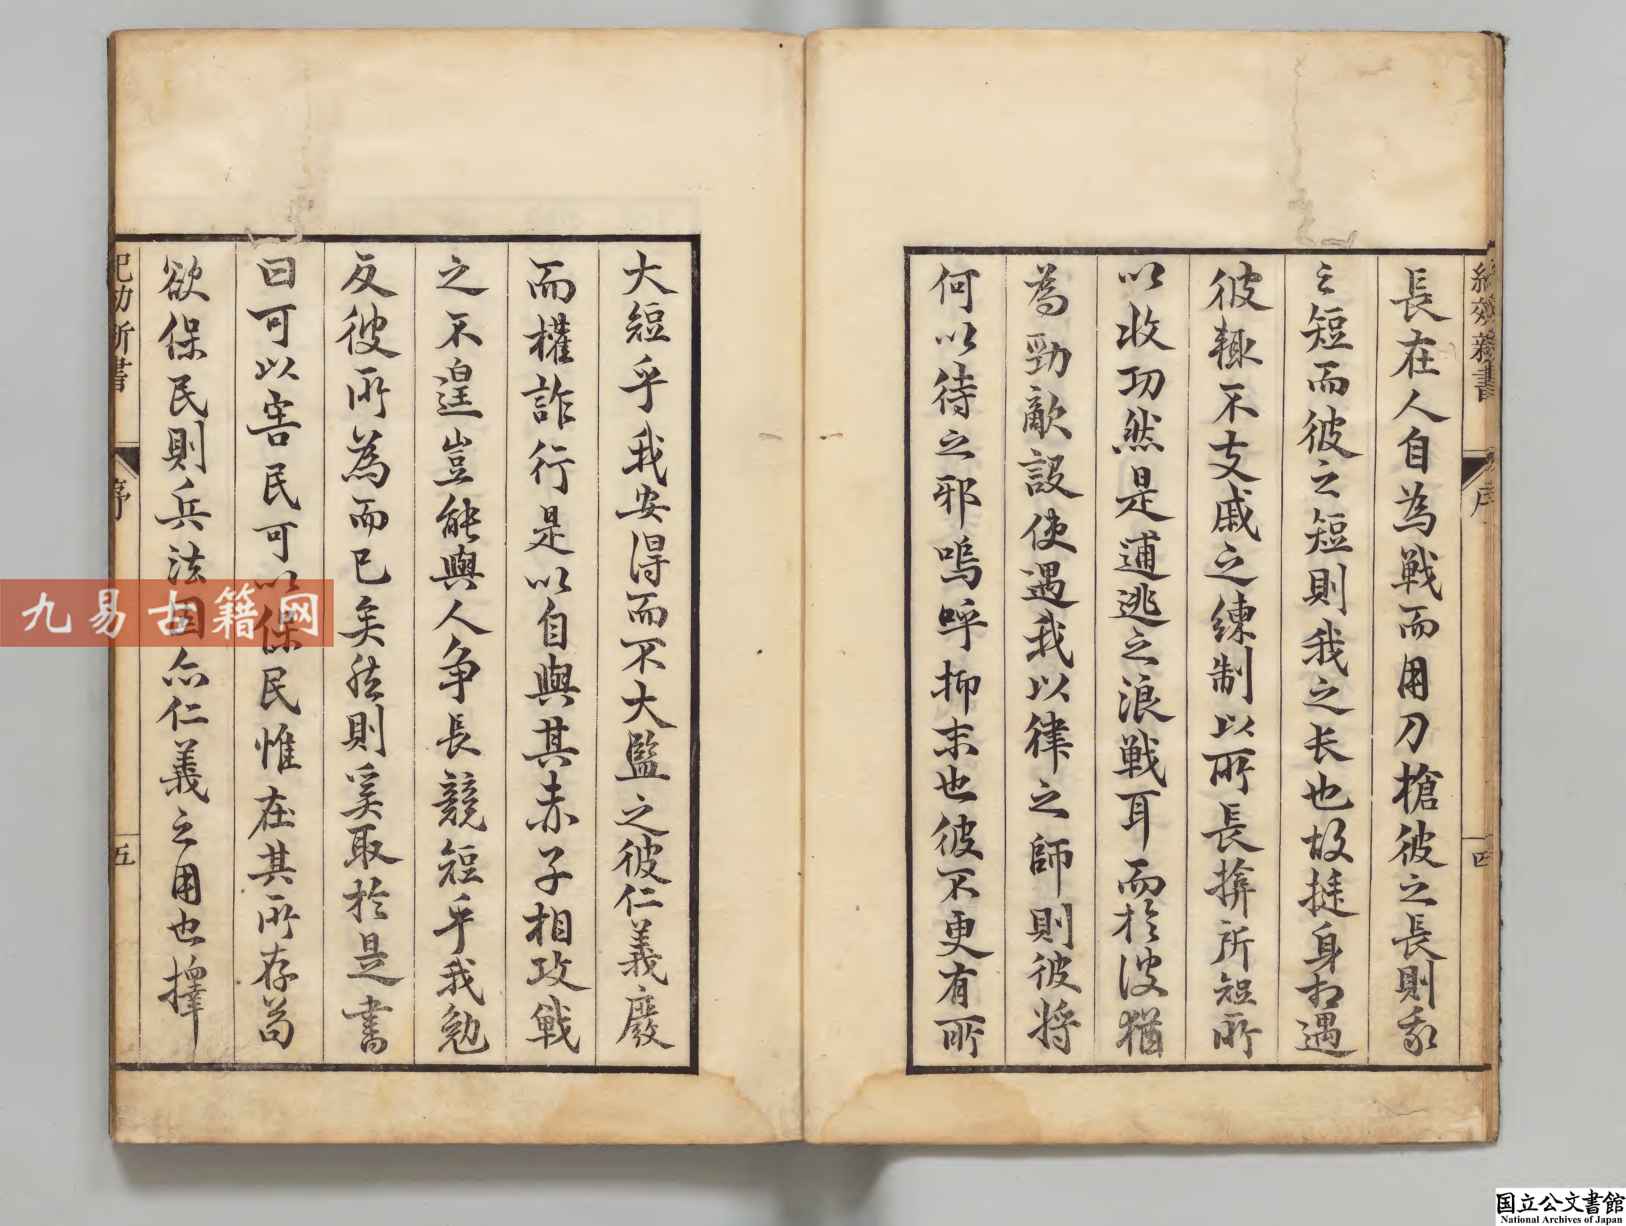 紀效新書
序
四
長在人自為戰而用刀槍彼之長則我
之短而彼之短則我之长也故挺身相遇
彼輒不支戚之練制以所長揜所短所
以收功然是逋逃之浪戰耳而於彼猶
為勁敵設使遇我以律之師則彼將
何以待之邪嗚呼抑末也彼不更有所
大短乎我安得而不大監之彼仁義廢
而權詐行是以自與其赤子相攻戰
之不遑豈能與人争長競短乎我勉
反彼所為而已矣然則奚取於是書
曰可以害民可以保民惟在其所存苟
欲保民則兵法固亦仁義之用也擇
紀効新書
序
五
九易古籍网
国立公文書館
National Archives of Japan